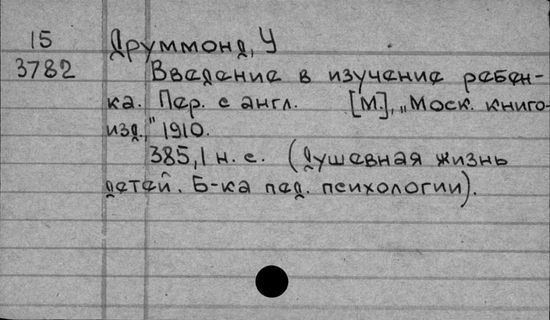 15 Друммонд, У
3782 Введение в изучение ребен-
ка. Пер. с англ. [М], „Моск. книго-
изд.” 1910.
385,1 н. с. (Душевная жизнь
детей. Б-ка пед. психологии).